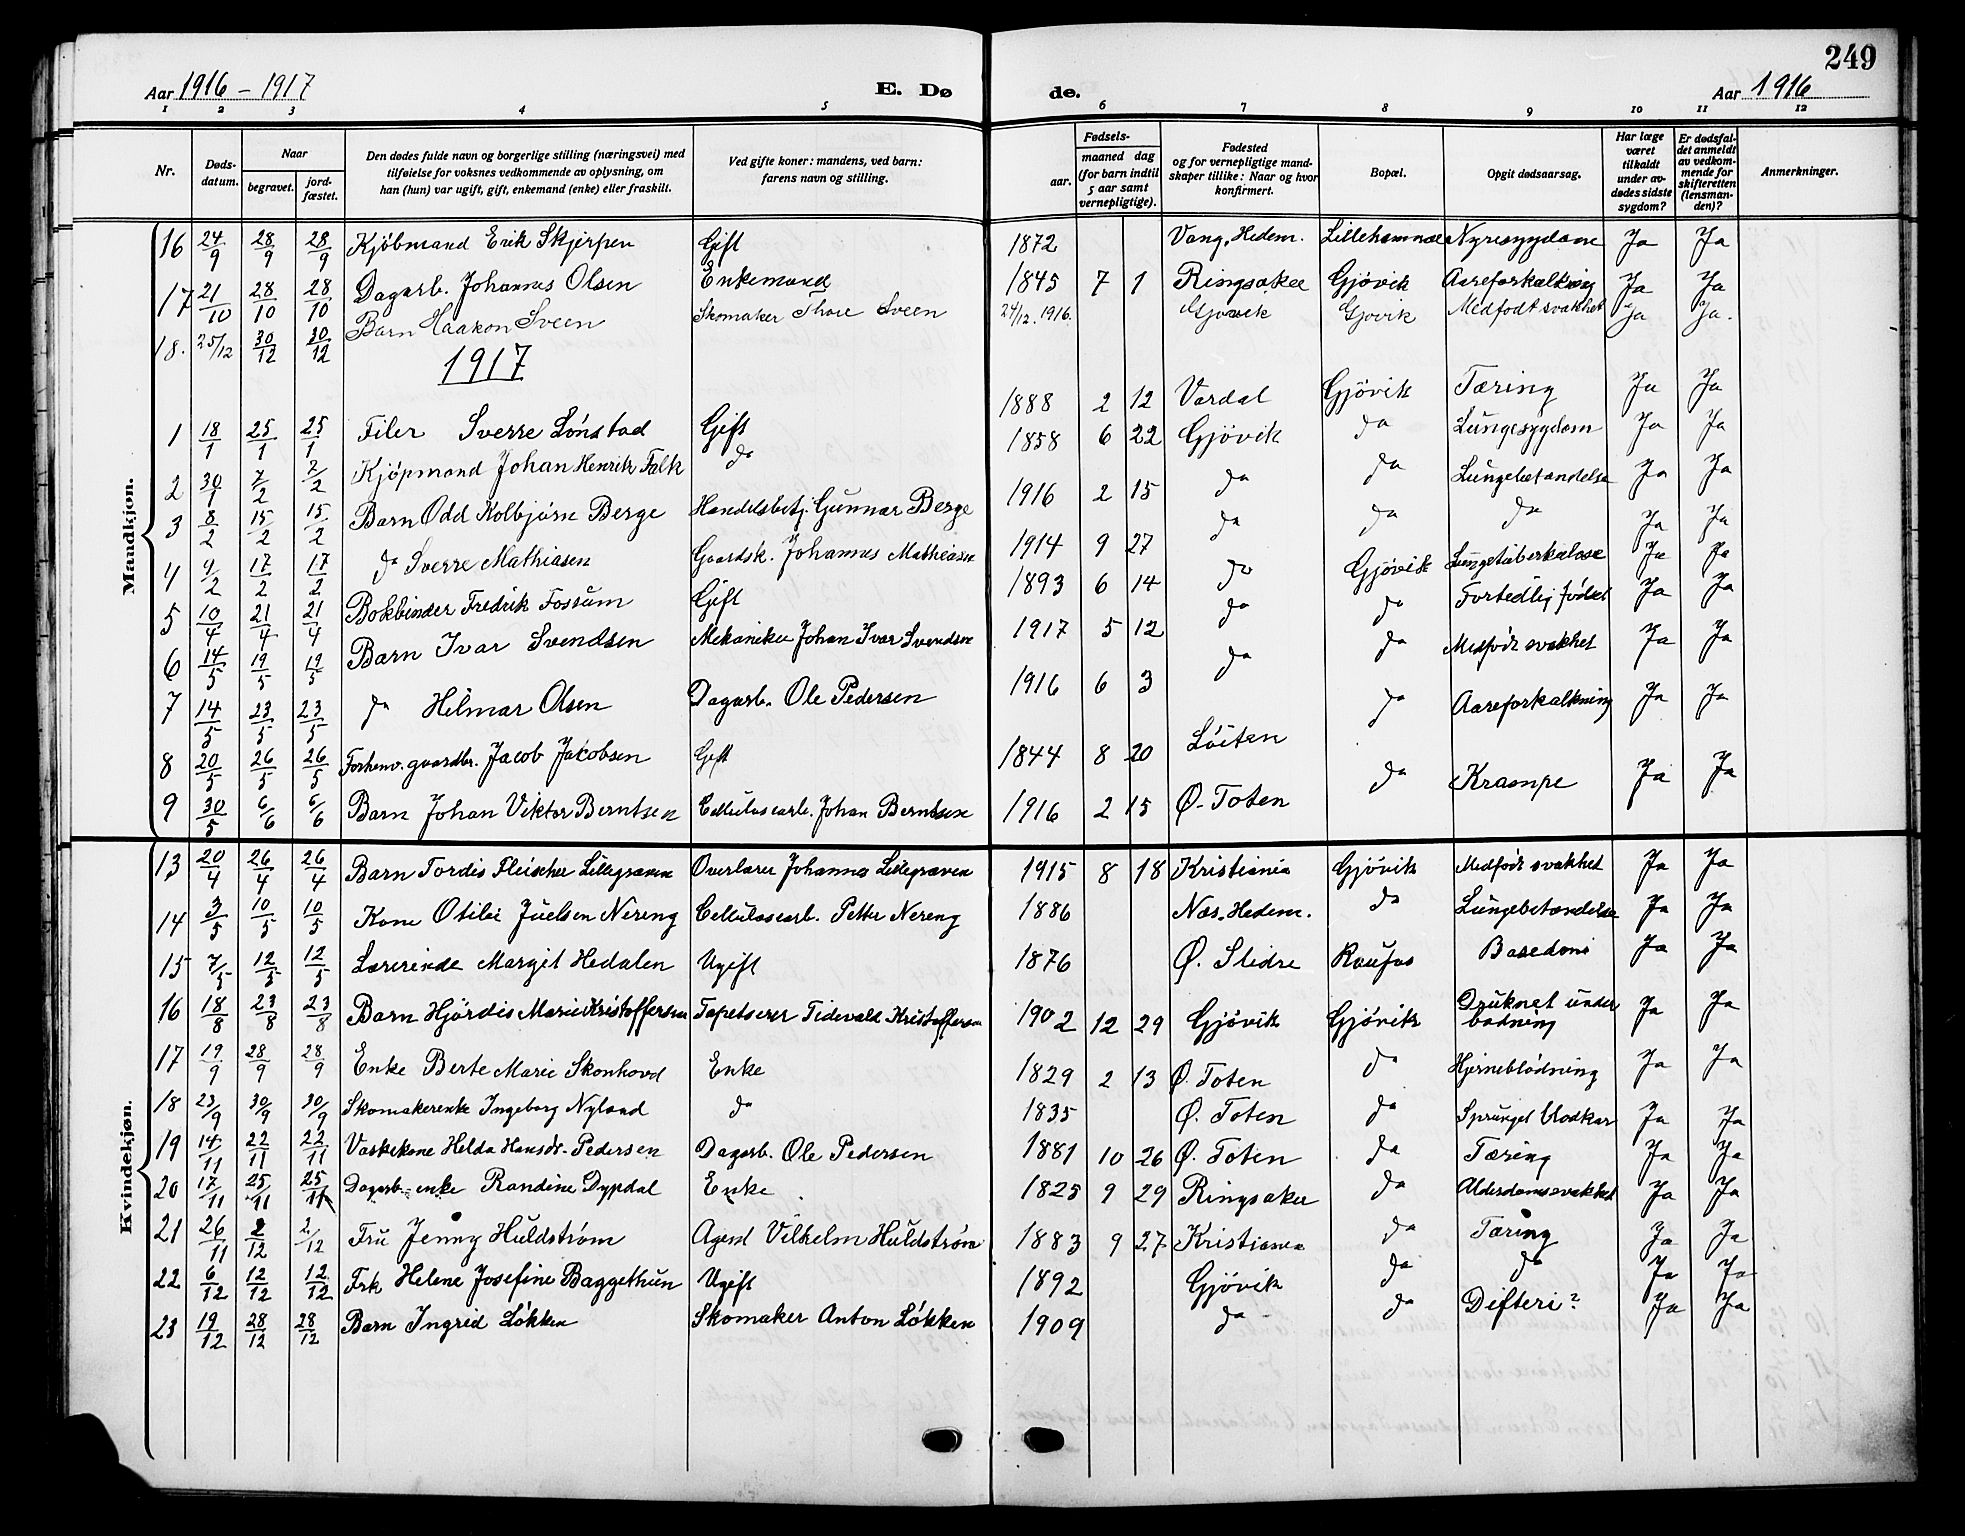 249
Aar 1916 - 1917 E. Dø de. Aar 1916
1 2 3 4 5 6 7 8 9 10 11 12
Nr. Døds-datum. Naar begravet. jord-fæstet. Den dødes fulde navn og borgerlige stilling (næringsvei) med tilføielse for voksnes vedkommende av oplysning, om han (hun) var ugift, gift, enkemand (enke) eller fraskilt. Ved gifte koner: mandens, ved barn: farens navn og stilling. Fødsels- aar. maaned dag (for barn indtil 5 aar samt vernepligtige). Fødested og for vernepligtige mand-skaper tillike: Naar og hvor konfirmert. Bopæl. Opgit dødsaarsag. Har læge været tilkaldt under av-dødes sidste sygdom? Er dødsfal-det anmeldt av vedkom-mende for skifteretten (lensman-den)? Anmerkninger.
Mandkjøn.
16 24/9 28/9 28/9 Kjöbmand Erik Skjerpen Gift 1872 Vang, Hedem. Lillehammer Nyresygdom Ja Ja
17 21/10 28/10 28/10 Dagarb. Johannes Olsen Enkemand 1845 7 1 Ringsaker Gjövik Aareforkalkning Ja Ja
18. 25/12 30/12 30/12 Barn Haakon Sveen Skomaker Thore Sveen 24/12. 1916. Gjövik Gjövik Medfödt svakhet Ja Ja.
1917
1 18/1 25/1 25/1 Filer Sverre Lönstad Gift 1888 2 12 Vardal Gjövik Tæring Ja Ja
2 30/1 7/2 7/2 Kjöpmand Johan Henrik Falk do 1858 6 22 Gjövik do Lungesygdom Ja Ja
3 8/2 15/2 15/2 Barn Odd Kolbjörn Berge Handelsbetj. Gunnar Berge 1916 2 15 do do Lungebetændelse Ja Ja
4 9/2 17/2 17/2 do Sverre Mathiasen Gaardsk. Johannes Mathiasen 1914 9 27 do do do Ja Ja
5 10/4 21/4 21/4 Bokbinder Fredrik Fossum Gift 1893 6 14 do Gjövik Lungetuberkulose Ja Ja
6 14/5 19/5 19/5 Barn Ivar Svendsen Mekaniker Johan Ivar Svendsen 1917 5 12 do do Fortidlig födsel Ja Ja
7 14/5 23/5 23/5 do Hilmar Olsen Dagarb. Ole Pedersen 1916 6 3 do do Medfödt svakhet Ja Ja
8 20/5 26/5 26/5 Forhenv. gaardbr. Jacob Jakobsen Gift 1844 8 20 Löiten do Aareforkalkning Ja Ja
9 30/5 6/6 6/6 Barn Johan Viktor Berntsen Cellulosearb. Johan Berntsen 1916 2 15 Ø. Toten do Krampe Ja Ja
Kvindekjøn.
13 20/4 26/4 26/4 Barn Tordis Fleischer Lillegraven Overlærer Johannes Lillegraven 1915 8 18 Kristiania Gjövik Medfödt svakhet Ja Ja
14 3/5 10/5 10/5 Kone Otilie Juelsen Nereng Cellulosearb. Petter Nereng 1886 Næs. Hedem. do Lungebetændelse Ja Ja
15 7/5 12/5 12/5 Lærerinde Margit Hedalen Ugift 1876 Ø. Slidre Raufos Basedoni Ja Ja
16 18/8 23/8 23/8 Barn Hjördis Marie Kristoffersen Tapetserer Tidevald Kristoffersen 1902 12 29 Gjövik Gjövik Druknet under badning Ja Ja
17 19/9 28/9 28/9 Enke Berte Marie Skonhovd Enke 1829 2 13 Ø. Toten do Hjerneblödning Ja Ja
18 23/9 30/9 30/9 Skomakerenke Ingeborg Nyland do 1835 Ø. Toten do Sprunget blodkar Ja Ja
19 14/11 22/11 22/11 Vaskekone Helda Hansdr. Pedersen Dagarb. Ole Pedersen 1881 10 26 Ø. Toten do Tæring Ja Ja
20 17/11 25/11 25/11 Dagarb. enke Randine Dypdal Enke 1825 9 29 Ringsaker do Alderdomssvakhet Ja Ja
21 26/11 2/12 2/12 Fru Jenny Huldstrøm Agent Vilhelm Huldstrøm 1883 9 27 Kristiania do Tæring Ja Ja
22 6/12 12/12 12/12 Frk Helene Josefine Baggethun Ugift 1892 Gjövik do do Ja Ja
23 19/12 28/12 28/12 Barn Ingrid Løkken Skomaker Anton Løkken 1909 do do Difteri? Ja Ja